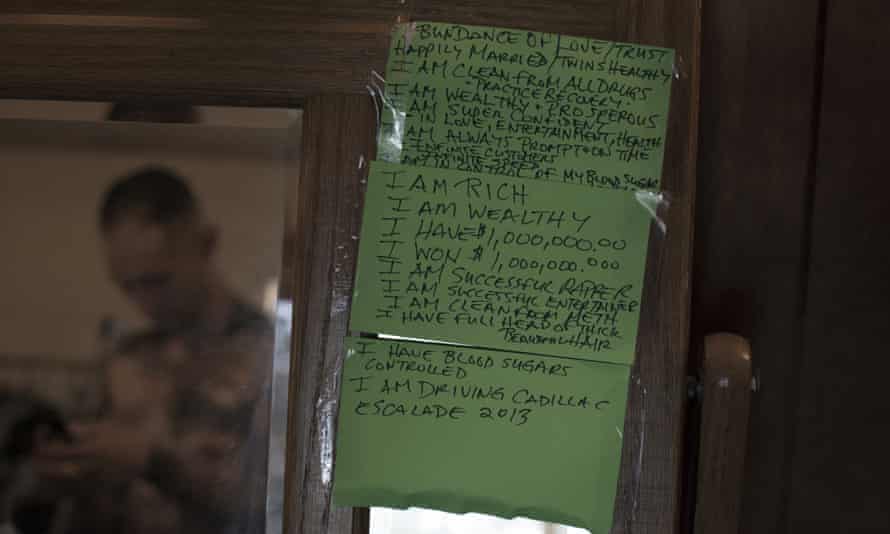 BUNDANCE OF LOVE/TRUST
HAPPILY MARRIED/TWINS HEALTHY
I AM CLEAN FROM ALL DRUGS
"PRACTICE RECOVERY"
I AM WEALTHY + PROSPEROUS
I AM SUPER CONFIDENT
IN LOVE, ENTERTAINMENT, HEALTH
I AM ALWAYS PROMPT + ON TIME
INFINITE CUSTOMERS
INFINITE SPEED
I AM IN CONTROL OF MY BLOOD SUGAR
I AM RICH
I AM WEALTHY
I HAVE $1,000,000.00
I WON $1,000,000.00
I AM SUCCESSFUL RAPPER
I AM SUCCESSFUL ENTERTAINER
I AM CLEAN FROM METH
I HAVE FULL HEAD OF THICK
BEAUTIFUL HAIR
I HAVE BLOOD SUGARS
CONTROLLED
I AM DRIVING CADILLAC
ESCALADE 2013